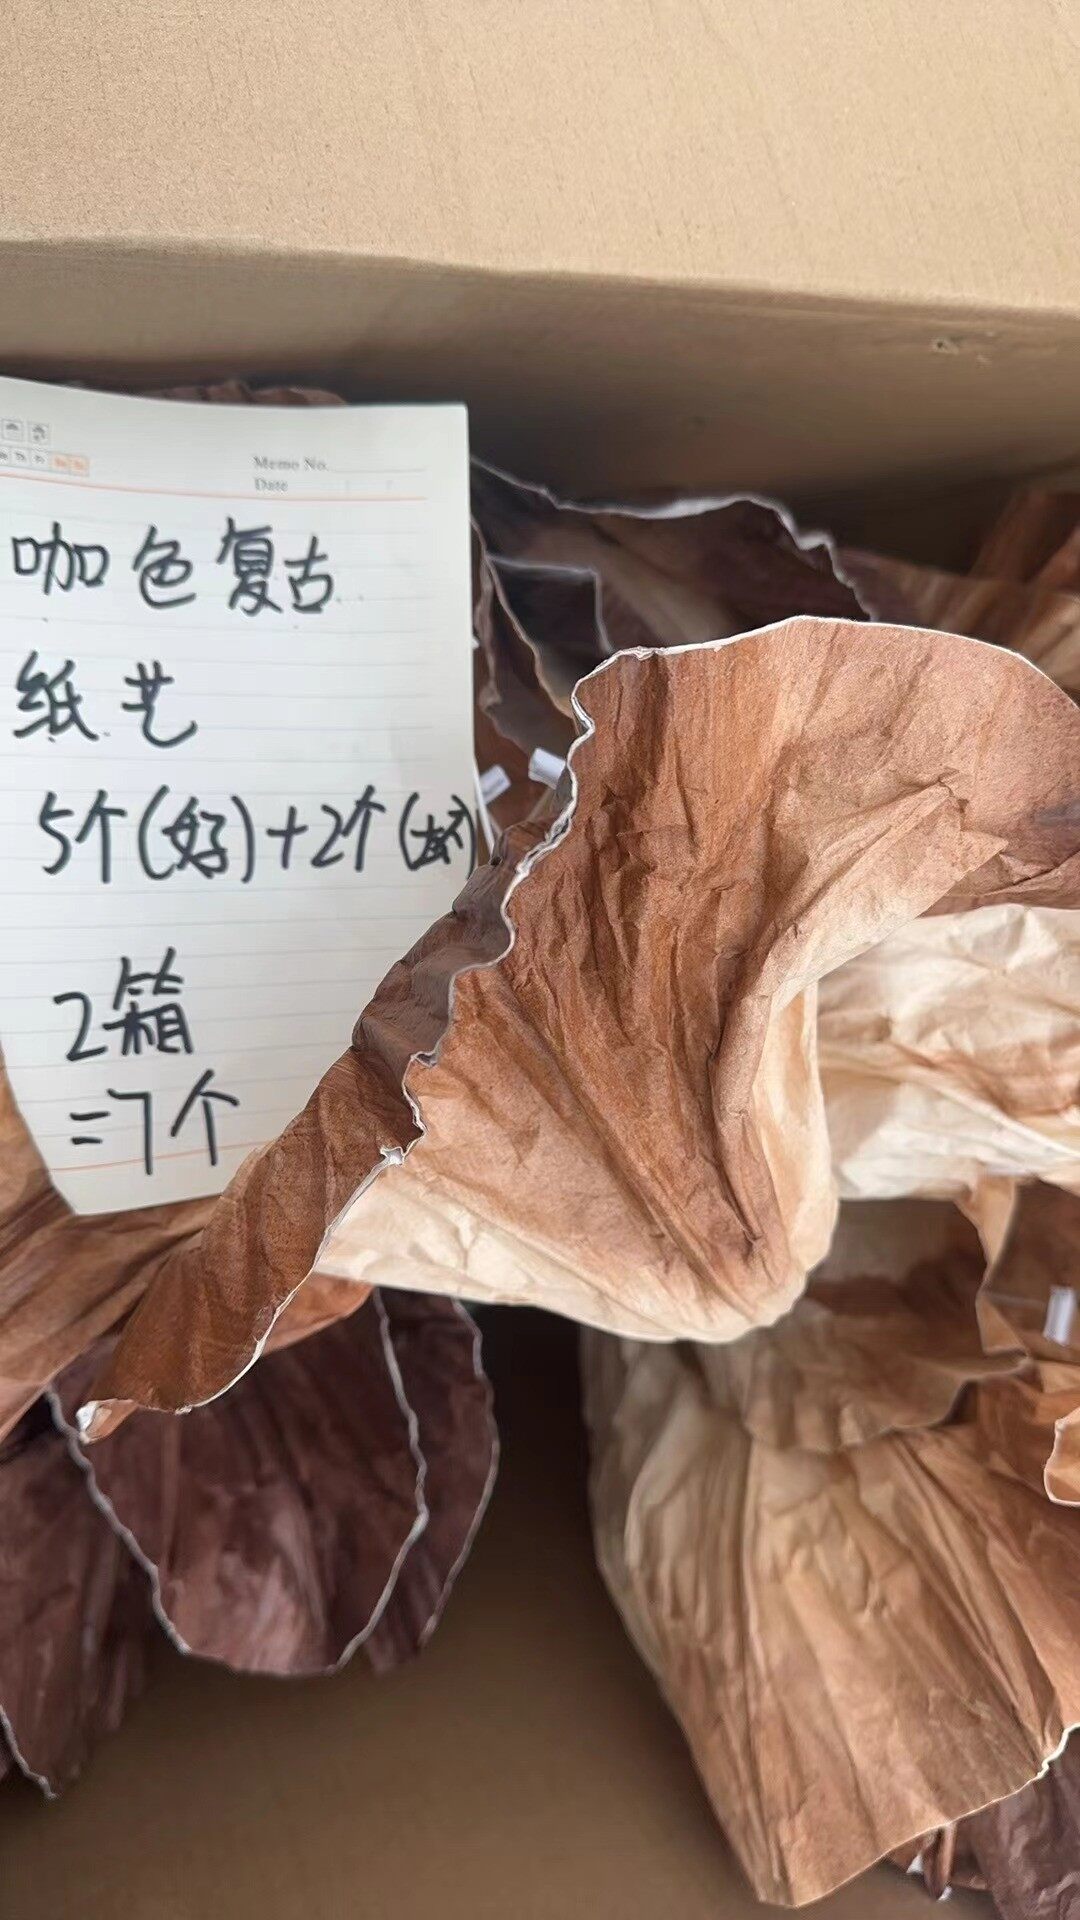 Memo No.
Date
咖色复古
纸艺
5个(好)+2个(坏)
2箱
=7个